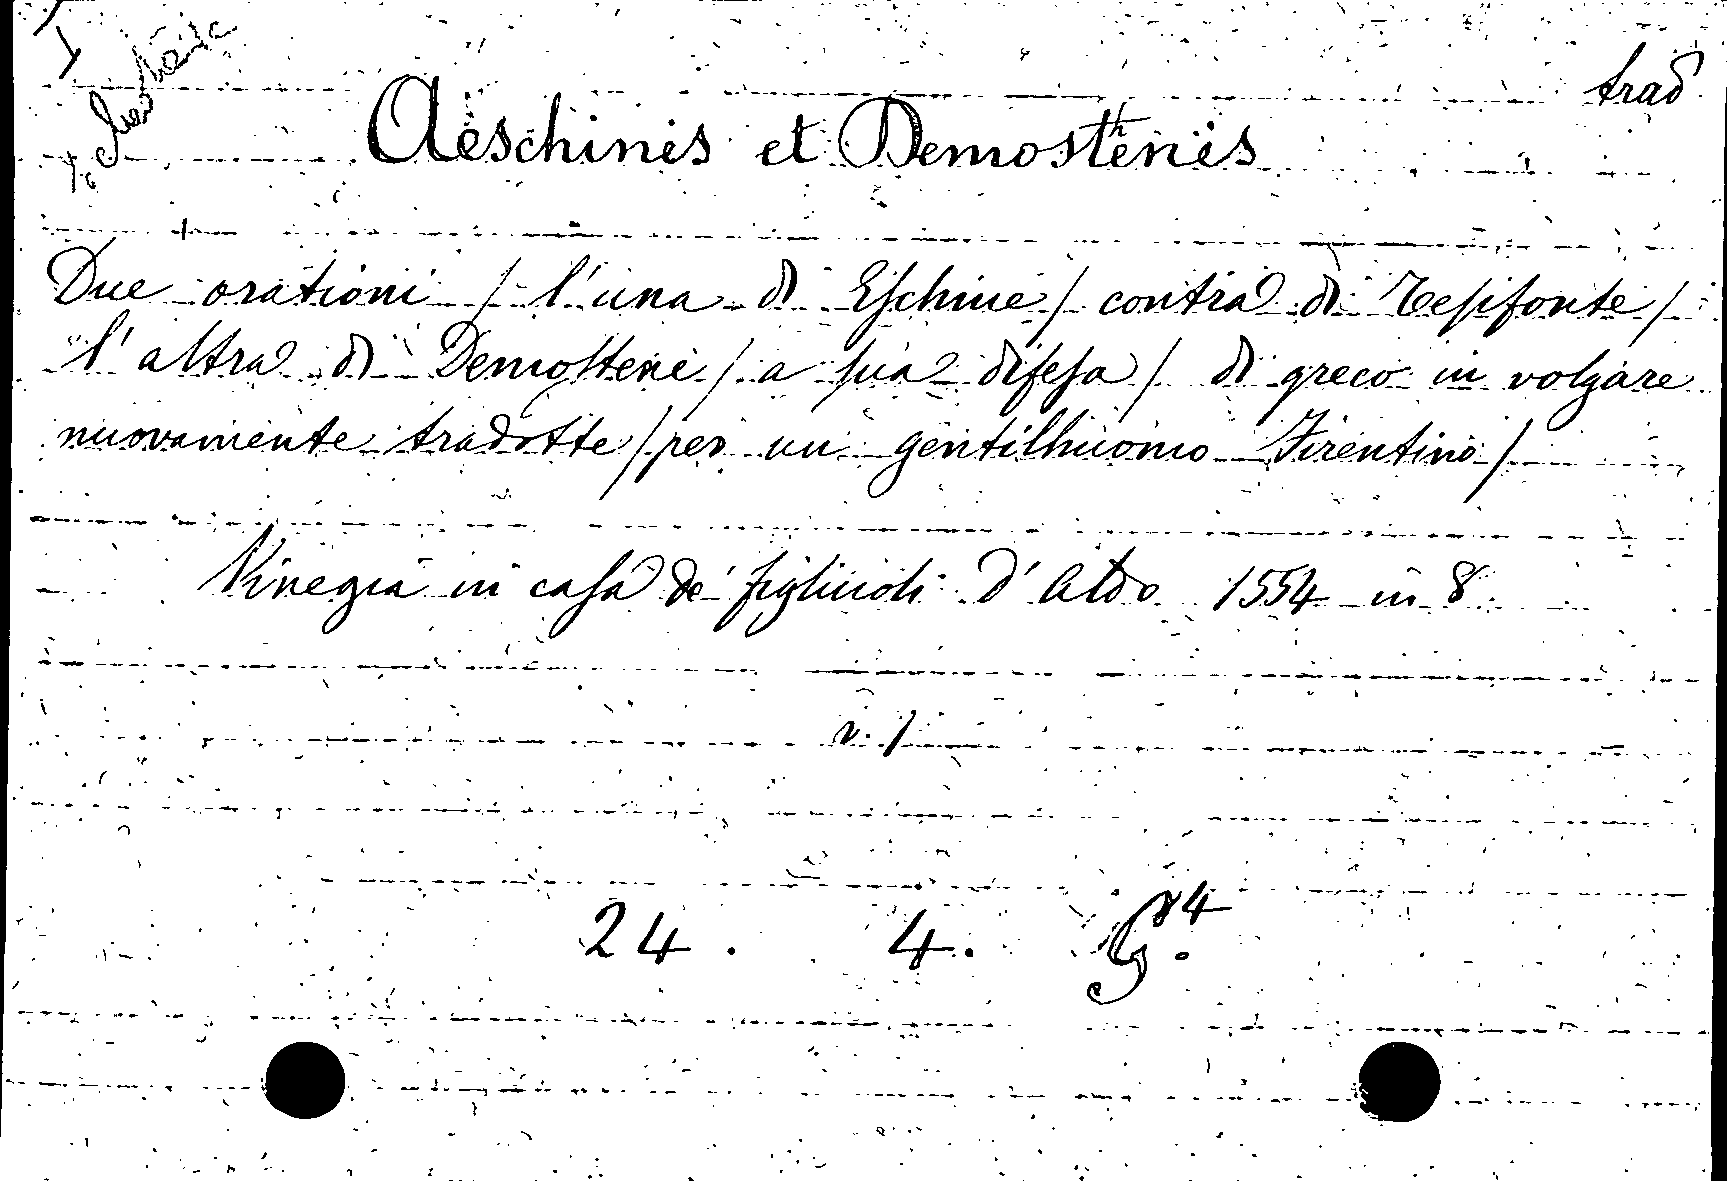 trad
Aeschinis et Demosthenis
Due orationi / l'una di Eſchine / contra di Teſifonte /
l'altra di Demoſtene / a ſua difeſa / di greco in volgare
nuovamente tradotte / per un gentilhuomo Firentino /
Vinegia in caſa de' figliuoli d'Aldo 1554 in 8.
24. 4. G.